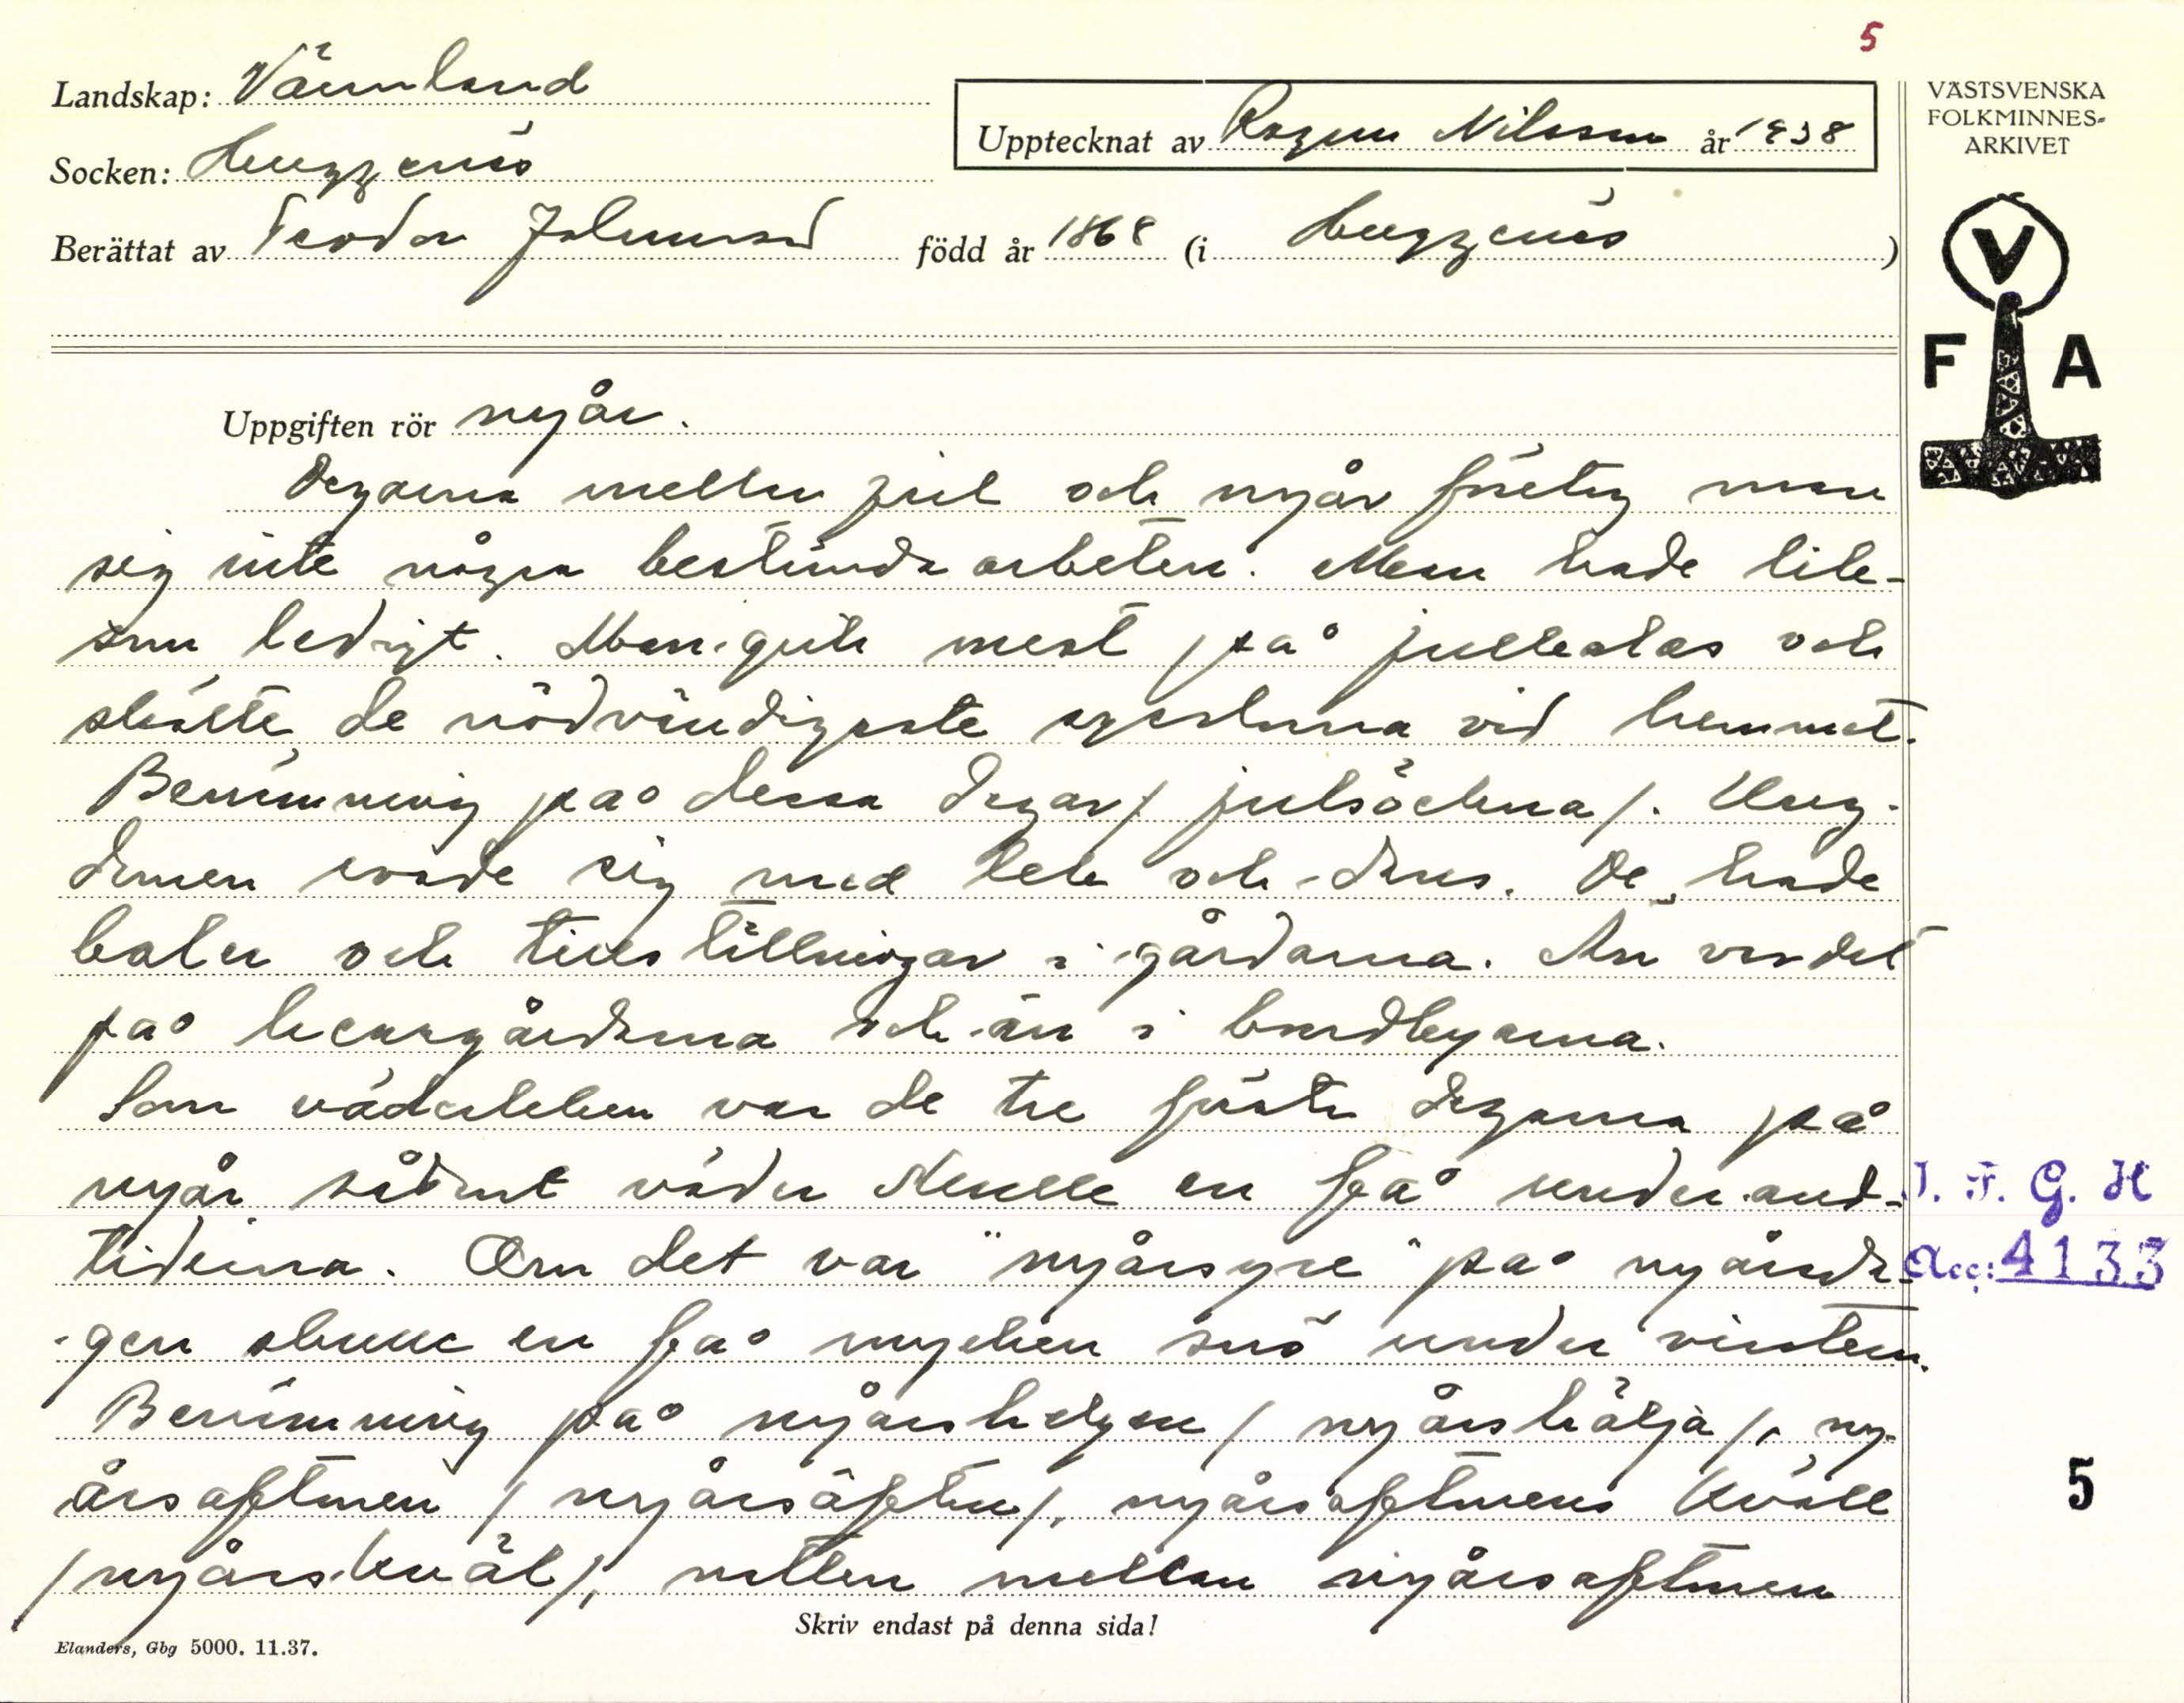 5
Landskap: Värmland
Upptecknat av Ragnar Nilsson år 1938
VÄSTSVENSKA
FOLKMINNES-
ARKIVET
Socken: Huggenäs
Berättat av Teodor Johansson född år 1868 (i Huggenäs)
V
F A
Uppgiften rör nyår.
Dagarna mellan jul och nyår företog man
sig inte några bestämda arbeten. Man hade lik-
som ledigt. Man gick mest på julkalas och
skötte de nödvändigaste sysslorna vid hemmet.
Benämning på dessa dagar / julsöckna /. Ung-
domen roade sig med lek och dans. De hade
baler och tillställningar i gårdarna. Än var det
på herrgårdarna och än i bondbyarna.
Som väderleken var de tre första dagarna på
nyår sådant väder skulle en få under and-
tiderna. Om det var "nyårsyre" på nyårsda-
gen skulle en få mycken snö under vintern.
Benämning på nyårshelgen / nyårshälja /, ny-
årsaftonen / nyårsäften /, nyårsaftonens kväll
/ nyårskväl /, natten mellan nyårsaftonen
I. F. G. H
Acc: 4133
5
Skriv endast på denna sida!
Elanders, Gbg 5000. 11.37.